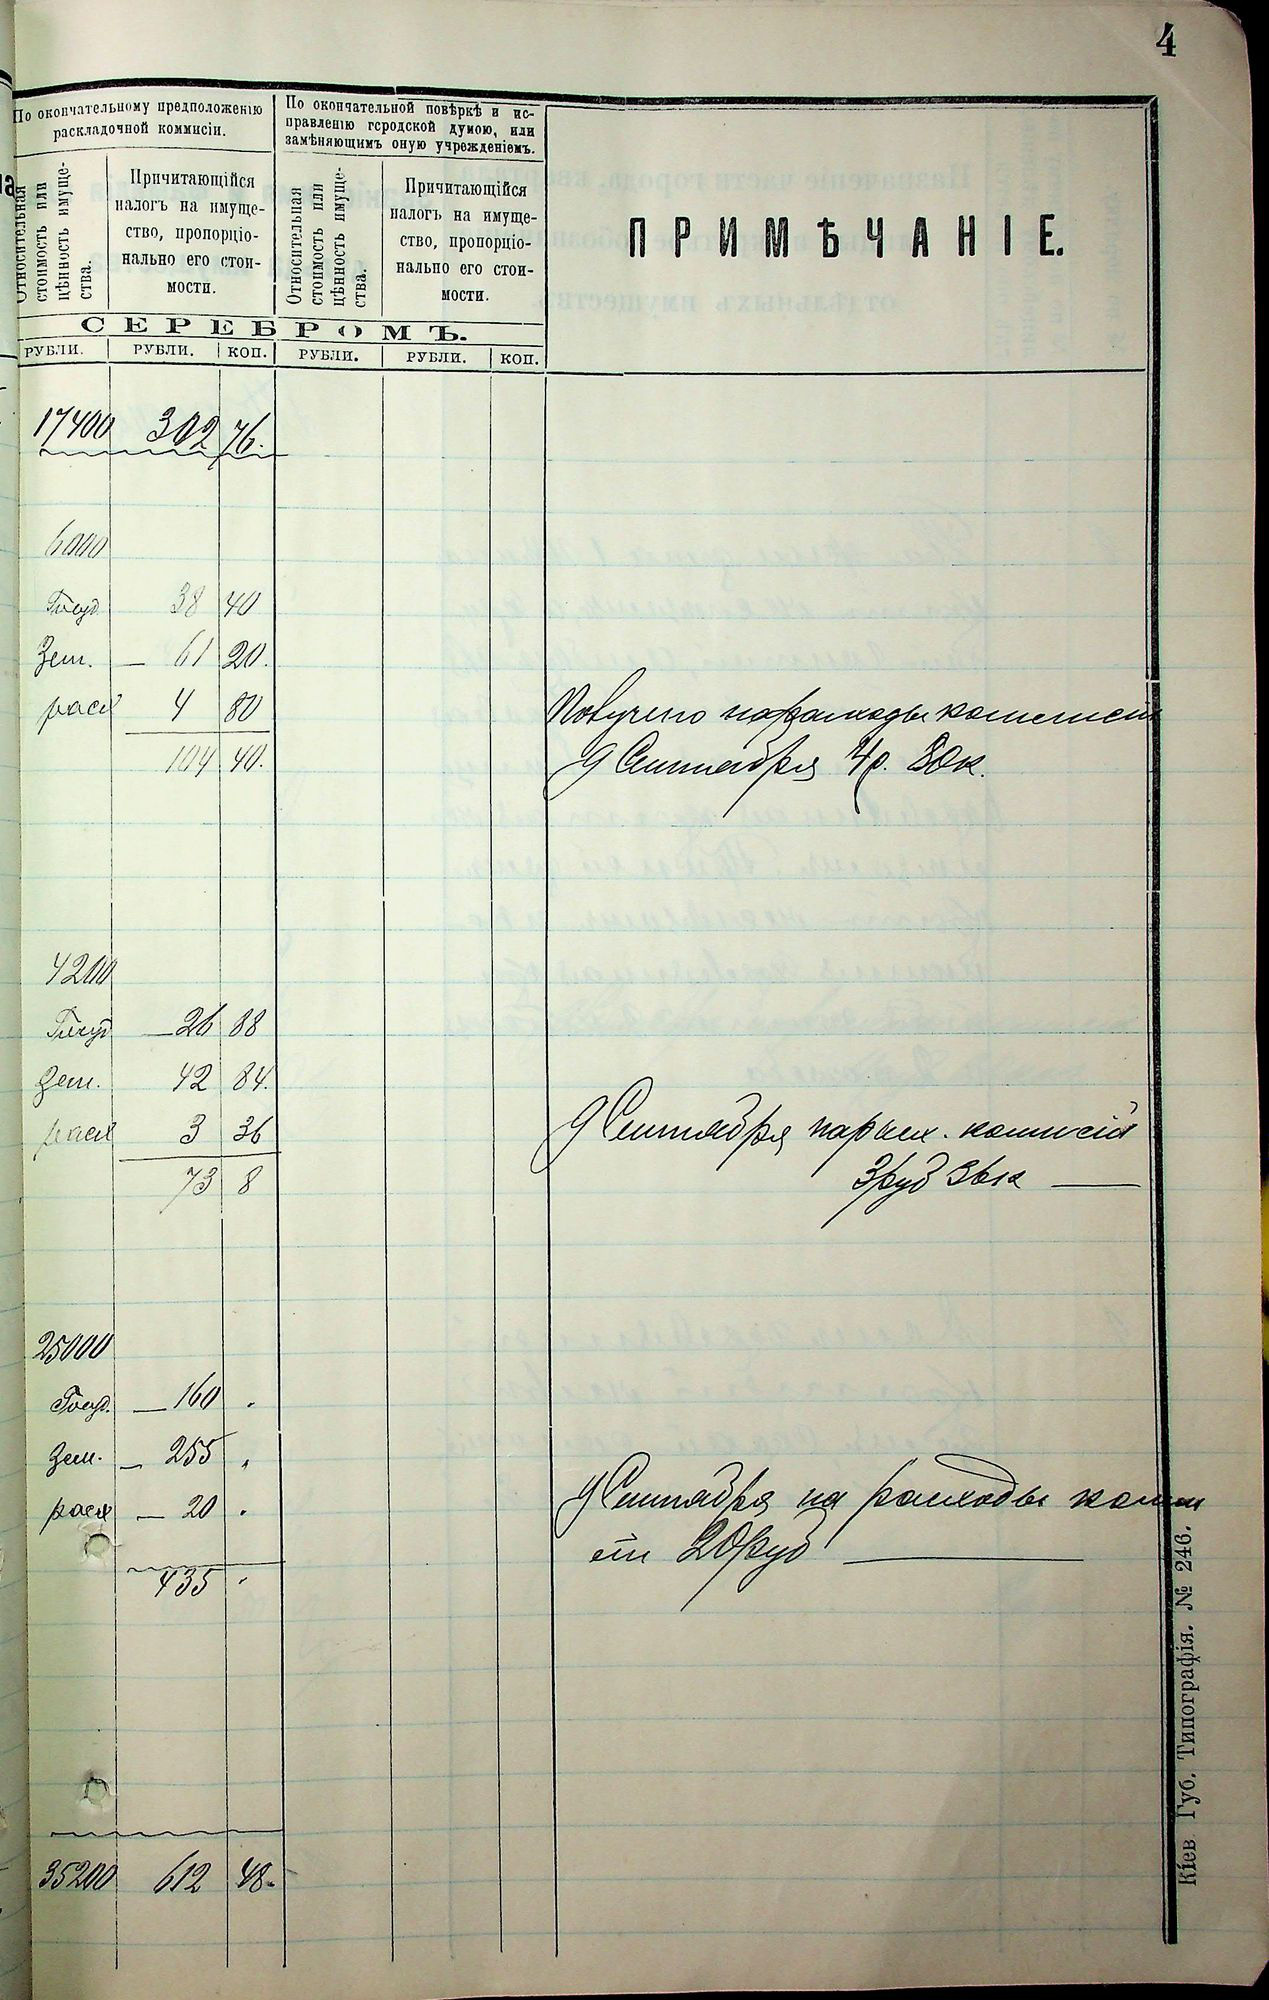 4
По окончательному предположенію
раскладочной коммисіи.
По окончательной повѣркѣ и ис-
правленію городской думою, или
замѣняющимъ оную учрежденіемъ.
Относительная
стоимость или
цѣнность имуще-
ства.
Причитающійся
налогъ на имуще-
ство, пропорціо-
нально его стои-
мости.
Относительная
стоимость или
цѣнность имуще-
ства.
Причитающійся
налогъ на имуще-
ство, пропорціо-
нально его стои-
мости.
ПРИМѢЧАНІЕ.
СЕРЕБРОМЪ.
РУБЛИ. РУБЛИ. КОП. РУБЛИ. РУБЛИ. КОП.
17400 302 76.
6000
Госуд. 38 40
Зем. — 61 20.
расх 4 80
104 40.
Получено на расходы комисіи
9 Сентября 4р. 80к.
4200
Госуд — 26 88
Зем. 42 84.
расх 3 36
73 8
9 Сентября на расх. комисіи
3 руб 36к —
25000
Госуд. — 160 "
Зем. — 255 "
расх — 20 "
435 "
9 Сентября на расходы комми
сіи 20 руб —
35200 612 48.
Кіев. Губ. Типографія. № 246.